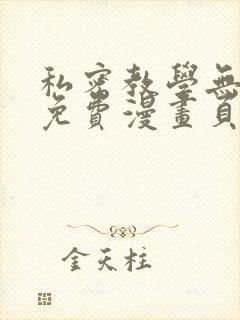 私密教學無
免費漫畫頁
金天柱